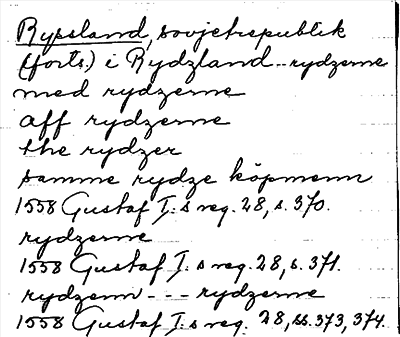 Ryssland, sovjetrepublik
(forts.) i Rydzland --rydzerne
med rydzerne
aff rydzerne
the rydzer
samme rydze köpmenn
1558 Gustaf I:s reg. 28, s. 370.
rydzerne
1558 Gustaf I:s reg. 28, s. 371.
rydzenn --- rydzerne
1558 Gustaf I:s reg. 28, ss. 373, 374.